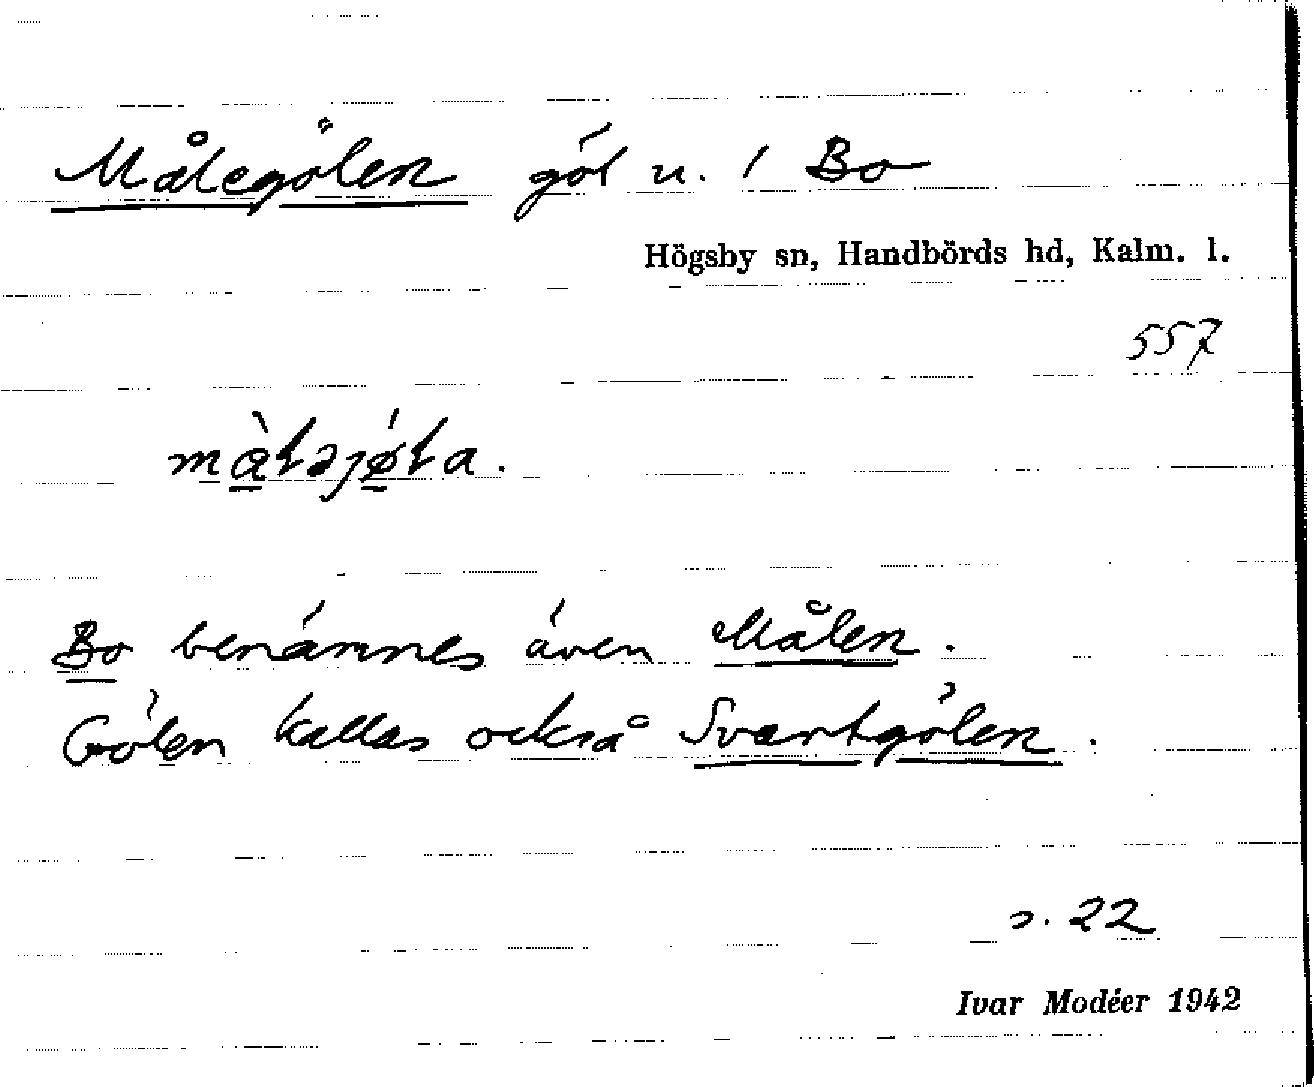 Målegölen göl u. / Bo
Högsby sn, Handbörds hd, Kalm. l.
557
màłəjǿła.
Bo benämnes även Målen.
Gölen kallas också Svartgölen.
s. 22
Ivar Modéer 1942